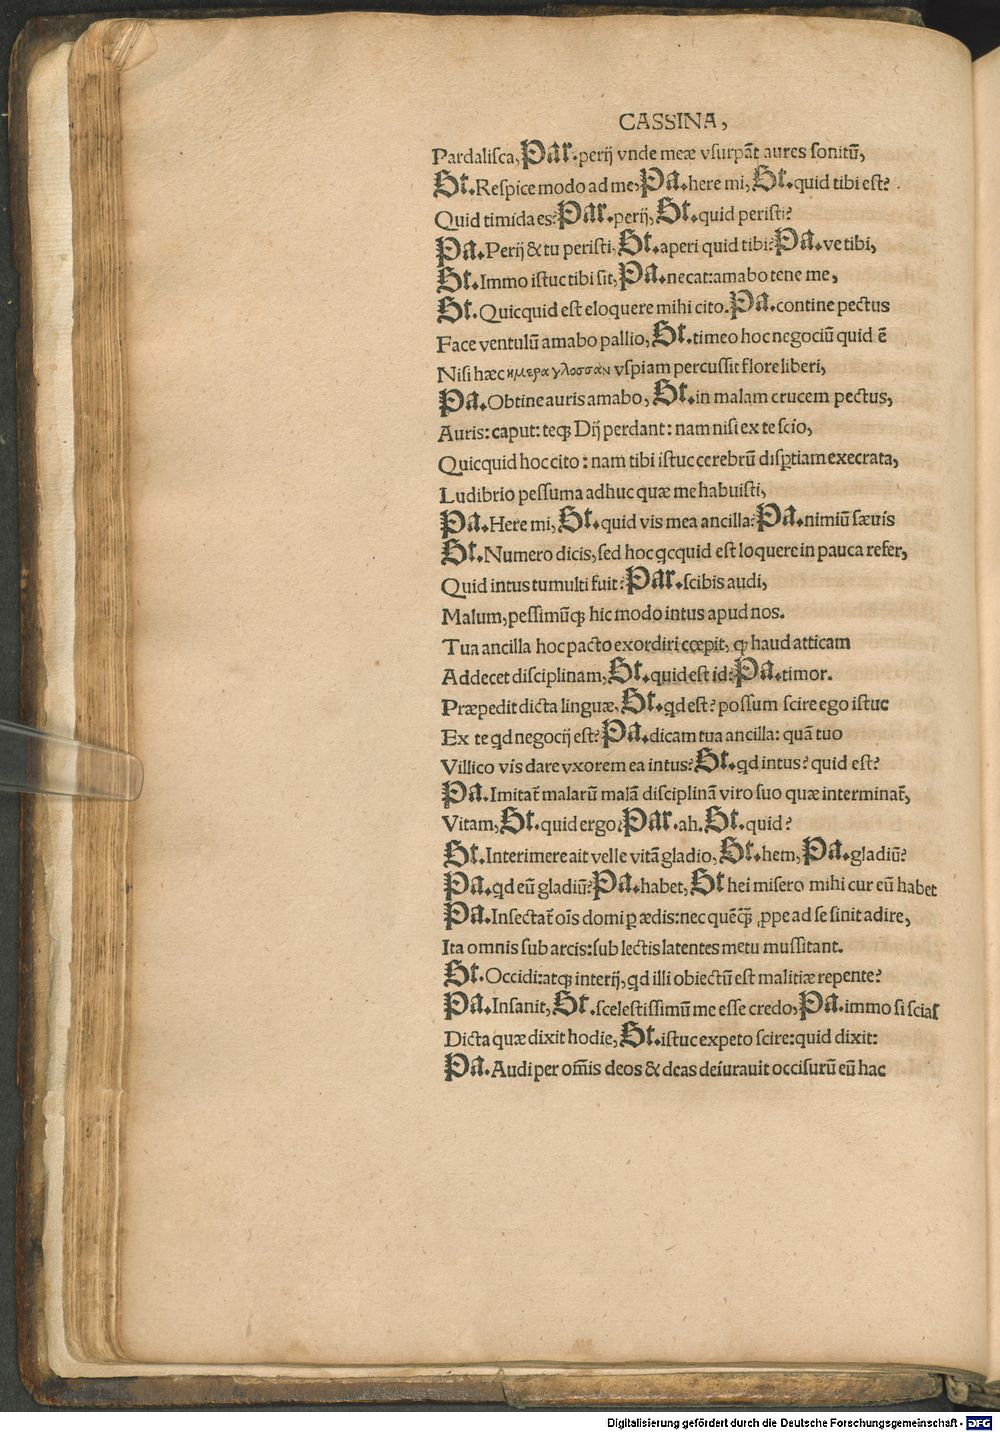 CASSINA,
Pardalisca, Par. perij vnde meæ vsurpāt aures sonitū,
St. Respice modo ad me, Pa. here mi, St. quid tibi est?
Quid timida es? Par. perij, St. quid peristi?
Pa. Perij & tu peristi, St. aperi quid tibi? Pa. ve tibi,
St. Immo istuc tibi sit, Pa. ne cat: amabo tene me,
St. Quicquid est eloquere mihi cito. Pa. contine pectus
Face ventulū amabo pallio, St. timeo hoc negociū quid ē
Nisi hæc ημερα γλοσσαν vspiam percussit flore liberi,
Pa. Obtine auris amabo, St. in malam crucem pectus,
Auris: caput: teqꝫ Dij perdant: nam nisi ex te scio,
Quicquid hoc cito: nam tibi istuc cerebrū disꝑtiam execrata,
Ludibrio pessuma adhuc quæ me habuisti,
Pa. Here mi, St. quid vis mea ancilla? Pa. nimiū sæuis
St. Numero dicis, sed hoc qcquid est loquere in pauca refer,
Quid intus tumulti fuit? Par. scibis audi,
Malum, pessimūqꝫ hic modo intus apud nos.
Tua ancilla hoc pacto exordiri cœpit, ꝙ haud atticam
Addecet disciplinam, St. quid est id? Pa. timor.
Præpedit dicta linguæ, St. qd est? possum scire ego istuc
Ex te qd negocij est? Pa. dicam tua ancilla: quā tuo
Villico vis dare vxorem ea intus? St. qd intus? quid est?
Pa. Imitat̄ malarū malā disciplinā viro suo quæ interminat̄,
Vitam, St. quid ergo? Par. ah. St. quid?
St. Interimere ait velle vitā gladio, St. hem, Pa. gladiū?
Pa. qd eū gladiū? Pa. habet, St hei misero mihi cur eū habet
Pa. Insectat̄ oīs domi ꝑ ædis: nec quēqꝫ̄ ꝓpe ad se sinit adire,
Ita omnis sub arcis: sub lectis latentes metu mussitant.
St. Occidi: atqꝫ interij, qd illi obiectū est malitiæ repente?
Pa. Insanit, St. scelestissimū me esse credo, Pa. immo si scias
Dicta quæ dixit hodie, St. istuc expeto scire: quid dixit:
Pa. Audi per om̄is deos & deas deiurauit occisurū eū hac
Digitalisierung gefördert durch die Deutsche Forschungsgemeinschaft - DFG